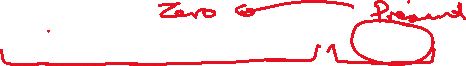 Zero Present